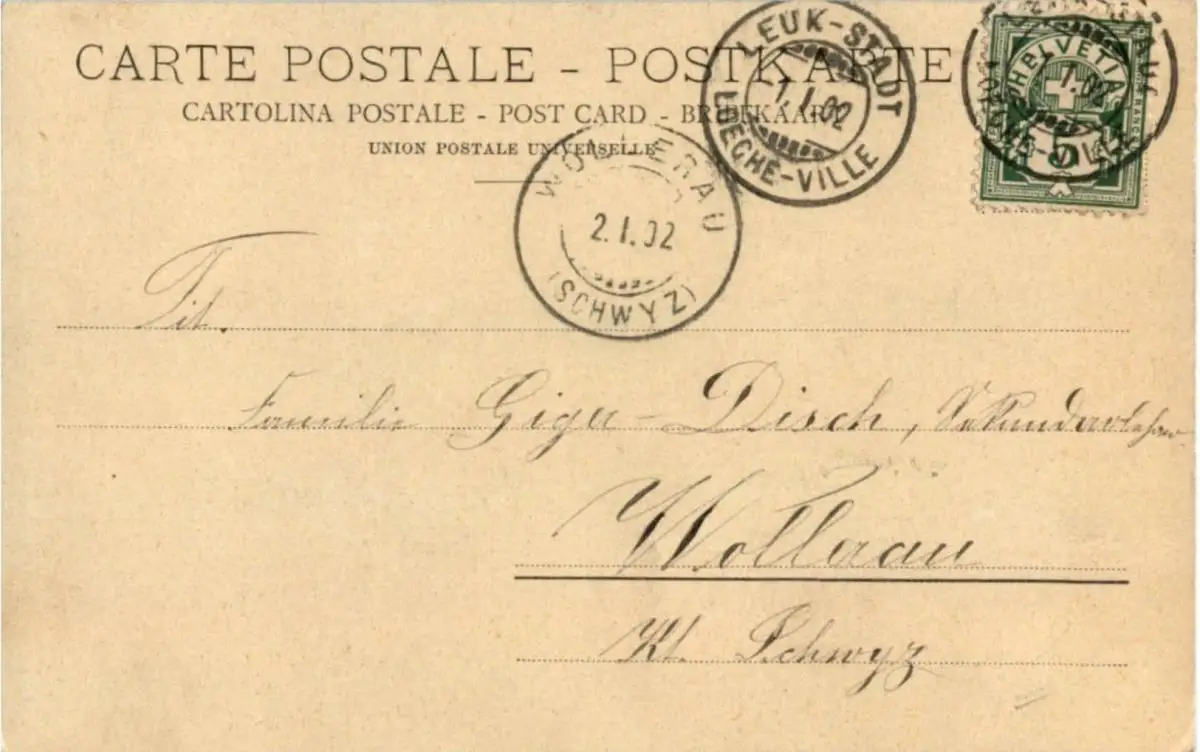 CARTE POSTALE - POSTKARTE
CARTOLINA POSTALE - POST CARD - BRIEFKAART
UNION POSTALE UNIVERSELLE
LEUK-STADT
1.I.02
LOÈCHE-VILLE
HELVETIA
FRANCO
5
1.02
LOÈCHE-VILLE
WOLLERAU
2.I.02
(SCHWYZ)
Tit.
Familie Giger-Disch, Sekundarlehrer
Wollerau
Kt. Schwyz